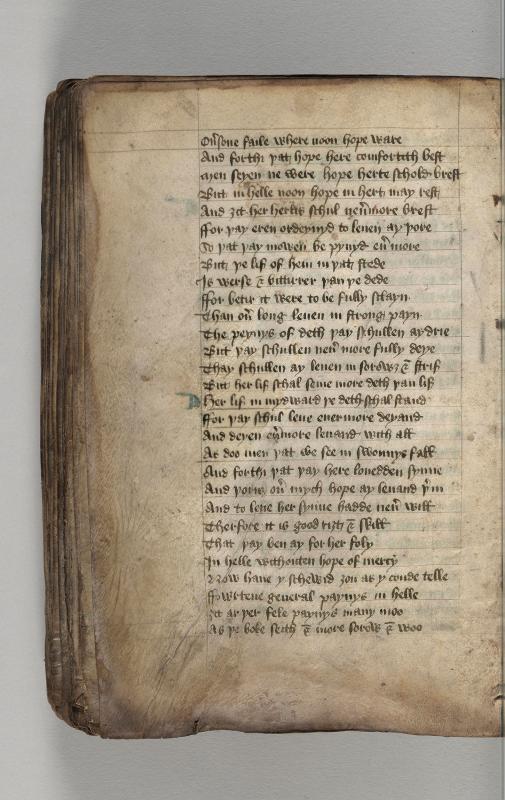 Ou sone faile where noon hope ware
And forthi þat hope here comfortith best
Men seyen ne were hope herte schold brest
But in helle noon hope in hert may rest
And ȝit her hertis schul neu̅more brest
ffor þay eren ordeynyd to leuen ay þore
So þat þay mowen be pynyd eu̅ more
But þe lif of hem in þat stede
Is werse & bitturer þan þe dede
ffor betir it were to be fully sclayn
Than ou̅ long leuen in strong payn
The peynys of deth þay schullen ay drie
But þay schullen neu̅ more fully deye
Thay schullen ay leuen in sorowȝ & strif
But her lif schal seme more deth þan lif
Her lif in mydward þe deth schal stand
ffor þay schul leue euermore deyand
And deyen eu̅more leuand with all
As doo men þat we see in swonnys fall
And forthi þat þay here louedden synne
And ou̅ mych hope ay leuand þ̅in
And to leue her synne hadde neu̅ will
Therfore it is good riȝt & skill
That þay ben ay for her foly
In helle withouten hope of mercy
Now haue y schewid ȝou as y coude telle
ffowrtene general paynys in helle
ȝit ar þer fele paynys many moo
As þe boke seith & more sorow & woo